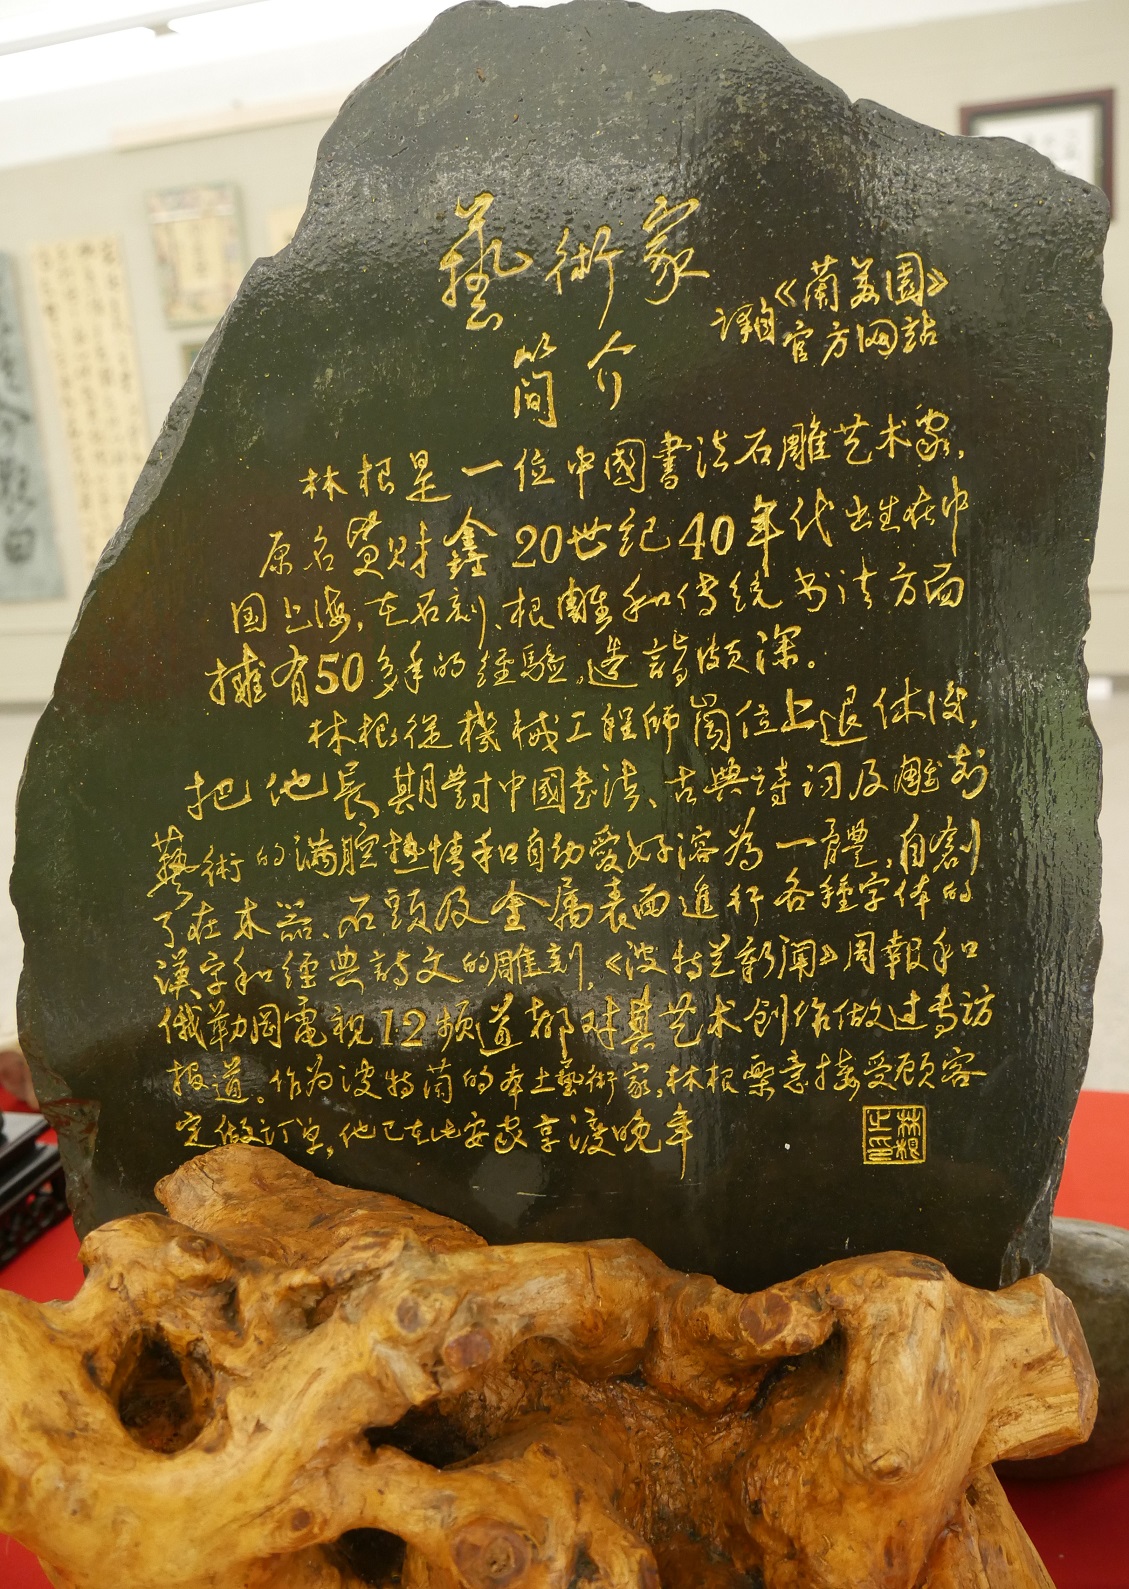 藝術家
簡介
譯自《蘭苏園》
官方网站
林根是一位中國書法石雕艺术家,
原名黄财鑫20世纪40年代出生在中
国上海,在石刻、根雕和传统书法方面
擁有50多年的经驗,造詣颇深。
林根從機械工程師崗位上退休後,
把他長期對中國书法、古典诗词及雕刻
藝術的满腔热情和自幼爱好溶為一體,自創
了在木器、石頭及金属表面進行各種字体的
漢字和經典詩文的雕刻,《波特兰新闻》周報和
俄勒岡電視12频道都对其艺术创作做过专访
报道。作为波特蘭的本土藝術家,林根樂意接受顾客
定做订单,他已在此安家享渡晚年
林根之印